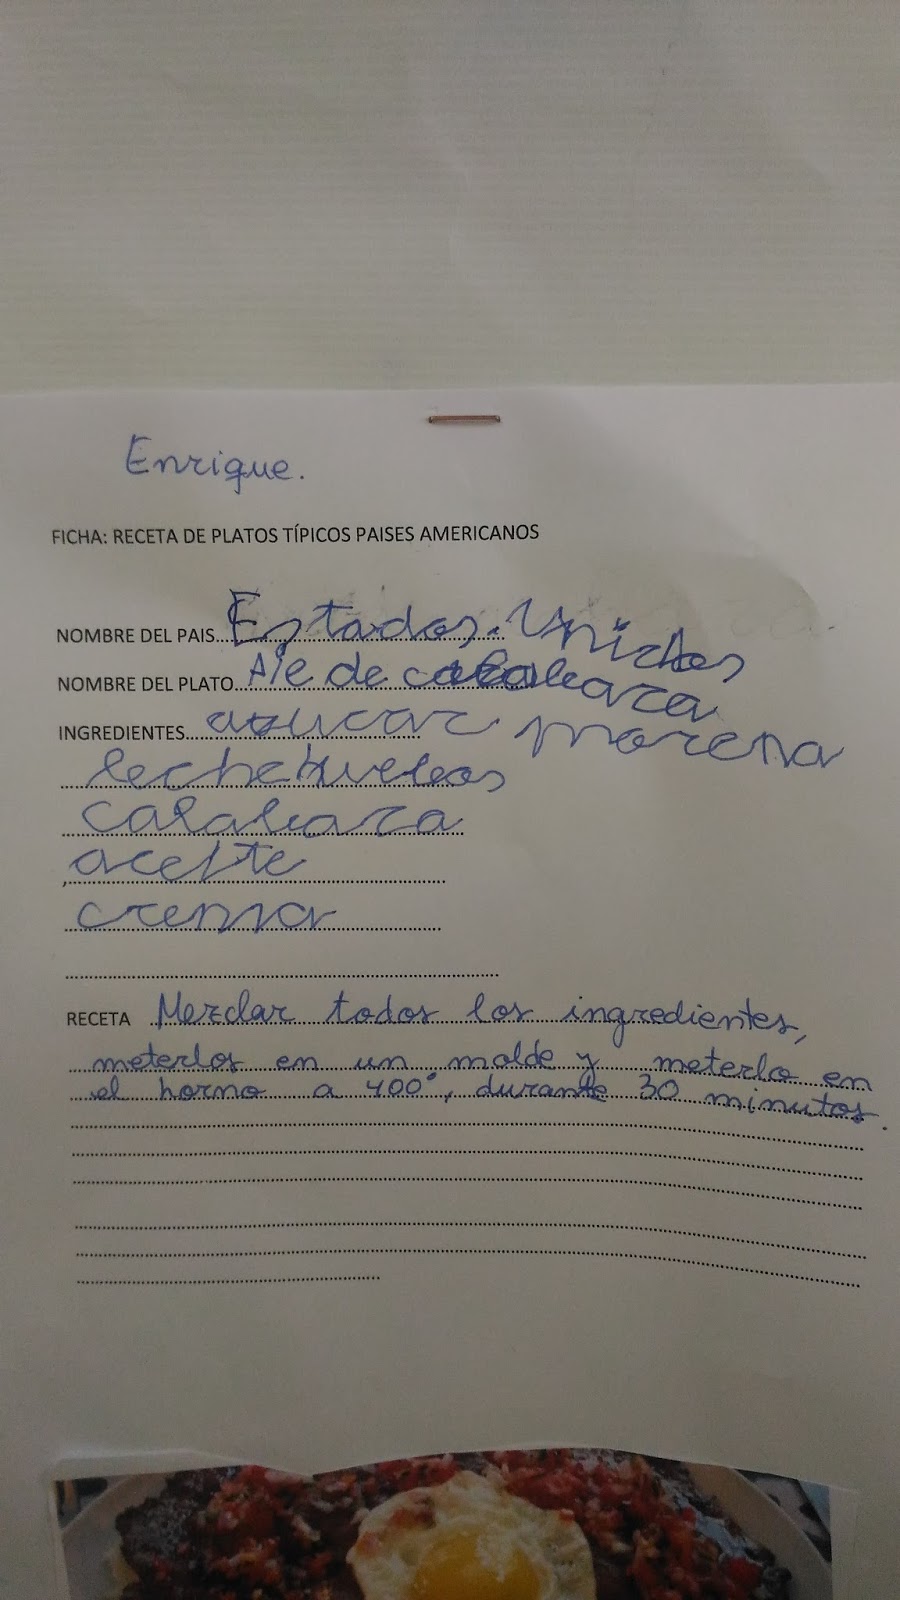 Enrique.
FICHA: RECETA DE PLATOS TÍPICOS PAISES AMERICANOS
NOMBRE DEL PAIS Estados Unidos
NOMBRE DEL PLATO Pie de calabaza
INGREDIENTES azucar morena
leche huevos
calabaza
aceite
crema
RECETA Mezclar todos los ingredientes,
meterlos en un molde y meterlo en
el horno a 400°, durante 30 minutos.